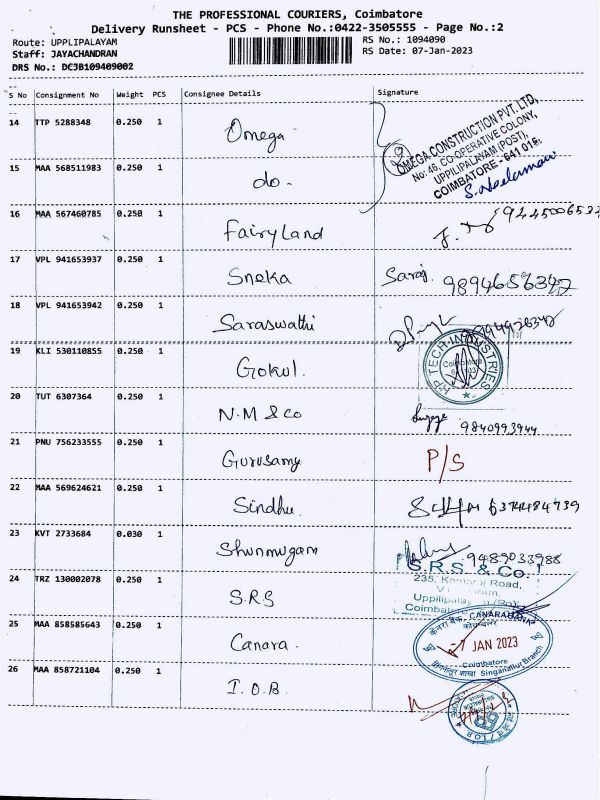 THE PROFESSIONAL COURIERS, Coimbatore
Delivery Runsheet - PCS - Phone No.:0422-3505555 - Page No.:2
Route: UPPLIPALAYAM RS No.: 1094090
Staff: JAYACHANDRAN RS Date: 07-Jan-2023
DRS No.: DCJB109409002
S No Consignment No Weight PCS Consignee Details Signature
14 TTP 5288348 0.250 1 Omega
OMEGA CONSTRUCTION PVT. LTD,
No: 46, CO-OPERATIVE COLONY,
UPPILIPALAYAM (POST),
COIMBATORE - 641 015.
15 MAA 568511983 0.250 1 do -
16 MAA 567460785 0.250 1 Fairyland
17 VPL 941653937 0.250 1 Sneka Saroj. 9894656347
18 VPL 941653942 0.250 1 Saraswathi
19 KLI 530110855 0.250 1 Gokul.
TECH-INDUSTRIES
Coimbatore
20 TUT 6307364 0.250 1 N.M & Co 9840993944
21 PNU 756233555 0.250 1 Gurusamy P/S
22 MAA 569624621 0.250 1 Sindhu. 6374484739
23 KVT 2733684 0.030 1 Shunmugam 9489033988
24 TRZ 130002078 0.250 1 S.R.S
S.R.S. & Co.
235, Kamaraj Road,
25 MAA 858585643 0.250 1 Canara.
केनरा बैंक CANARA BANK
कोयम्बत्तूर
-7 JAN 2023
Coimbatore
Singanallur Branch
26 MAA 858721104 0.250 1 I.O.B.